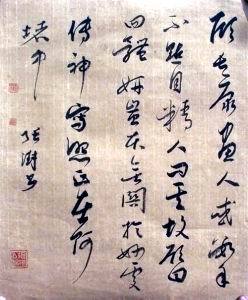 顧長康畫人或數年
不點目精人問其故顧曰
四體妍蚩本無關於妙處
傳神寫照正在阿
堵中